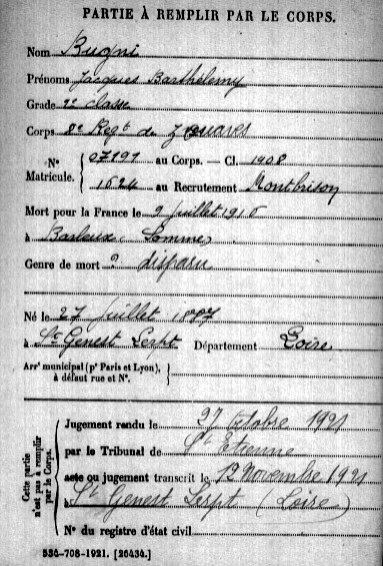 PARTIE À REMPLIR PAR LE CORPS.
Nom Bugni
Prénoms Jacques Barthélemy
Grade 2e classe
Corps 8e Regt de Zouaves
N° Matricule. 07191 au Corps. — Cl. 1908
1624 au Recrutement Montbrison
Mort pour la France le 9 Juillet 1916
à Barleux Somme
Genre de mort disparu
Né le 27 Juillet 1887
à St Genest Lerpt Département Loire
Arrt municipal (pr Paris et Lyon), à défaut rue et N°.
Cette partie n'est pas à remplir par le Corps.
Jugement rendu le 27 Octobre 1921
par le Tribunal de St Etienne
acte ou jugement transcrit le 12 Novembre 1921
à St Genest Lerpt (Loire)
N° du registre d'état civil
534-708-1921. [26434.]